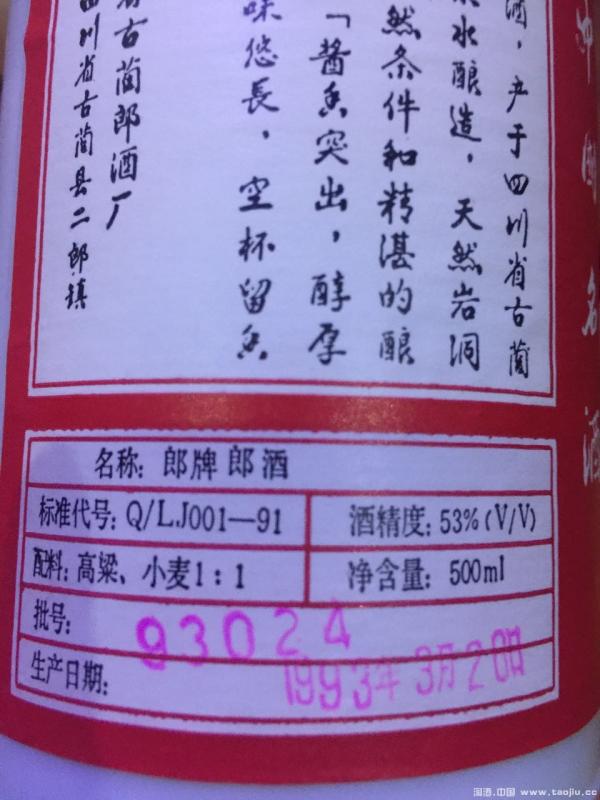 中国名酒
酒，产于四川省古蔺
水酿造，天然岩洞
然条件和精湛的酿
「酱香突出，醇厚
味悠長，空杯留香
省古蔺郎酒厂
四川省古蔺县二郎镇
名称: 郎牌郎酒
标准代号: Q/LJ001—91 酒精度: 53%(V/V)
配料: 高粱、小麦1:1 净含量: 500ml
批号: 93024
生产日期: 1993年3月20日
淘酒.中国 www.taojiu.cc